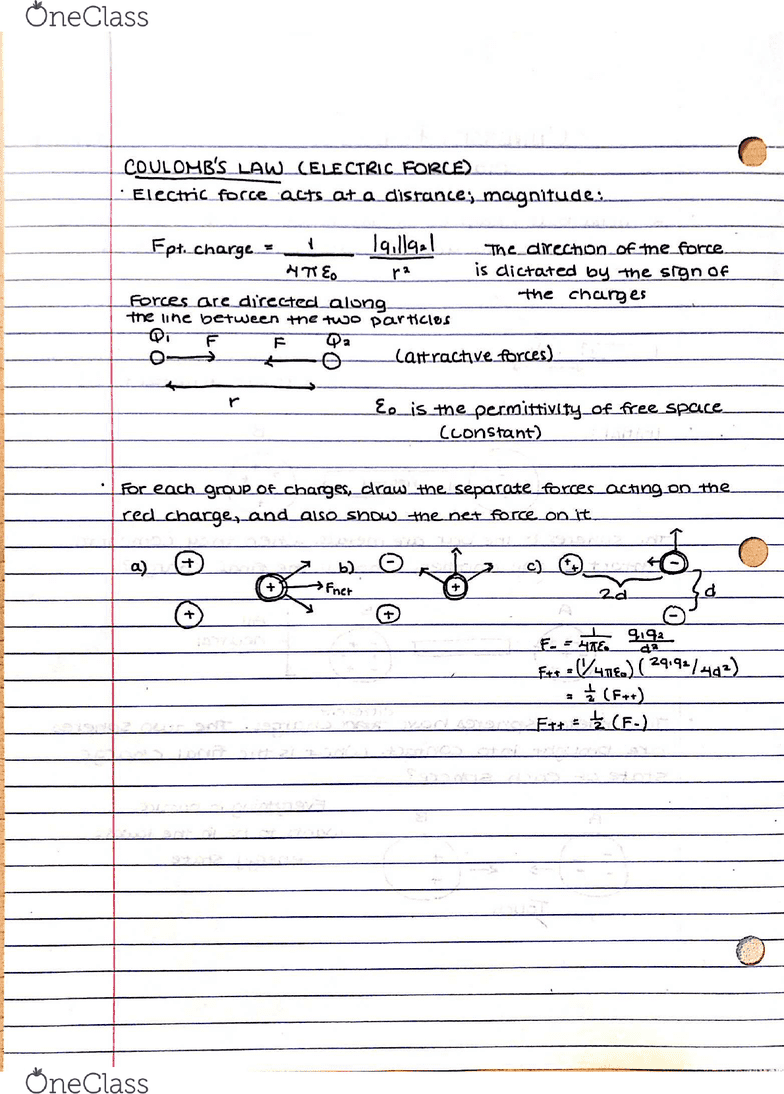 OneClass
COULOMB'S LAW (ELECTRIC FORCE)
· Electric force acts at a distance; magnitude:
Fpt. charge = 1/4πε₀ |q₁||q₂|/r²
The direction of the force
is dictated by the sign of
the charges
Forces are directed along
the line between the two particles
Q₁ F F Q₂
(attractive forces)
r
ε₀ is the permittivity of free space
(constant)
· For each group of charges, draw the separate forces acting on the
red charge, and also show the net force on it
a) + + Fnet b) - + c) ++ -
+ + 2d - d
F- = 1/4πε₀ q₁q₂/d²
F++ = (1/4πε₀)(2q₁q₂/4d²)
= ½ (F++)
F++ = ½ (F-)
OneClass